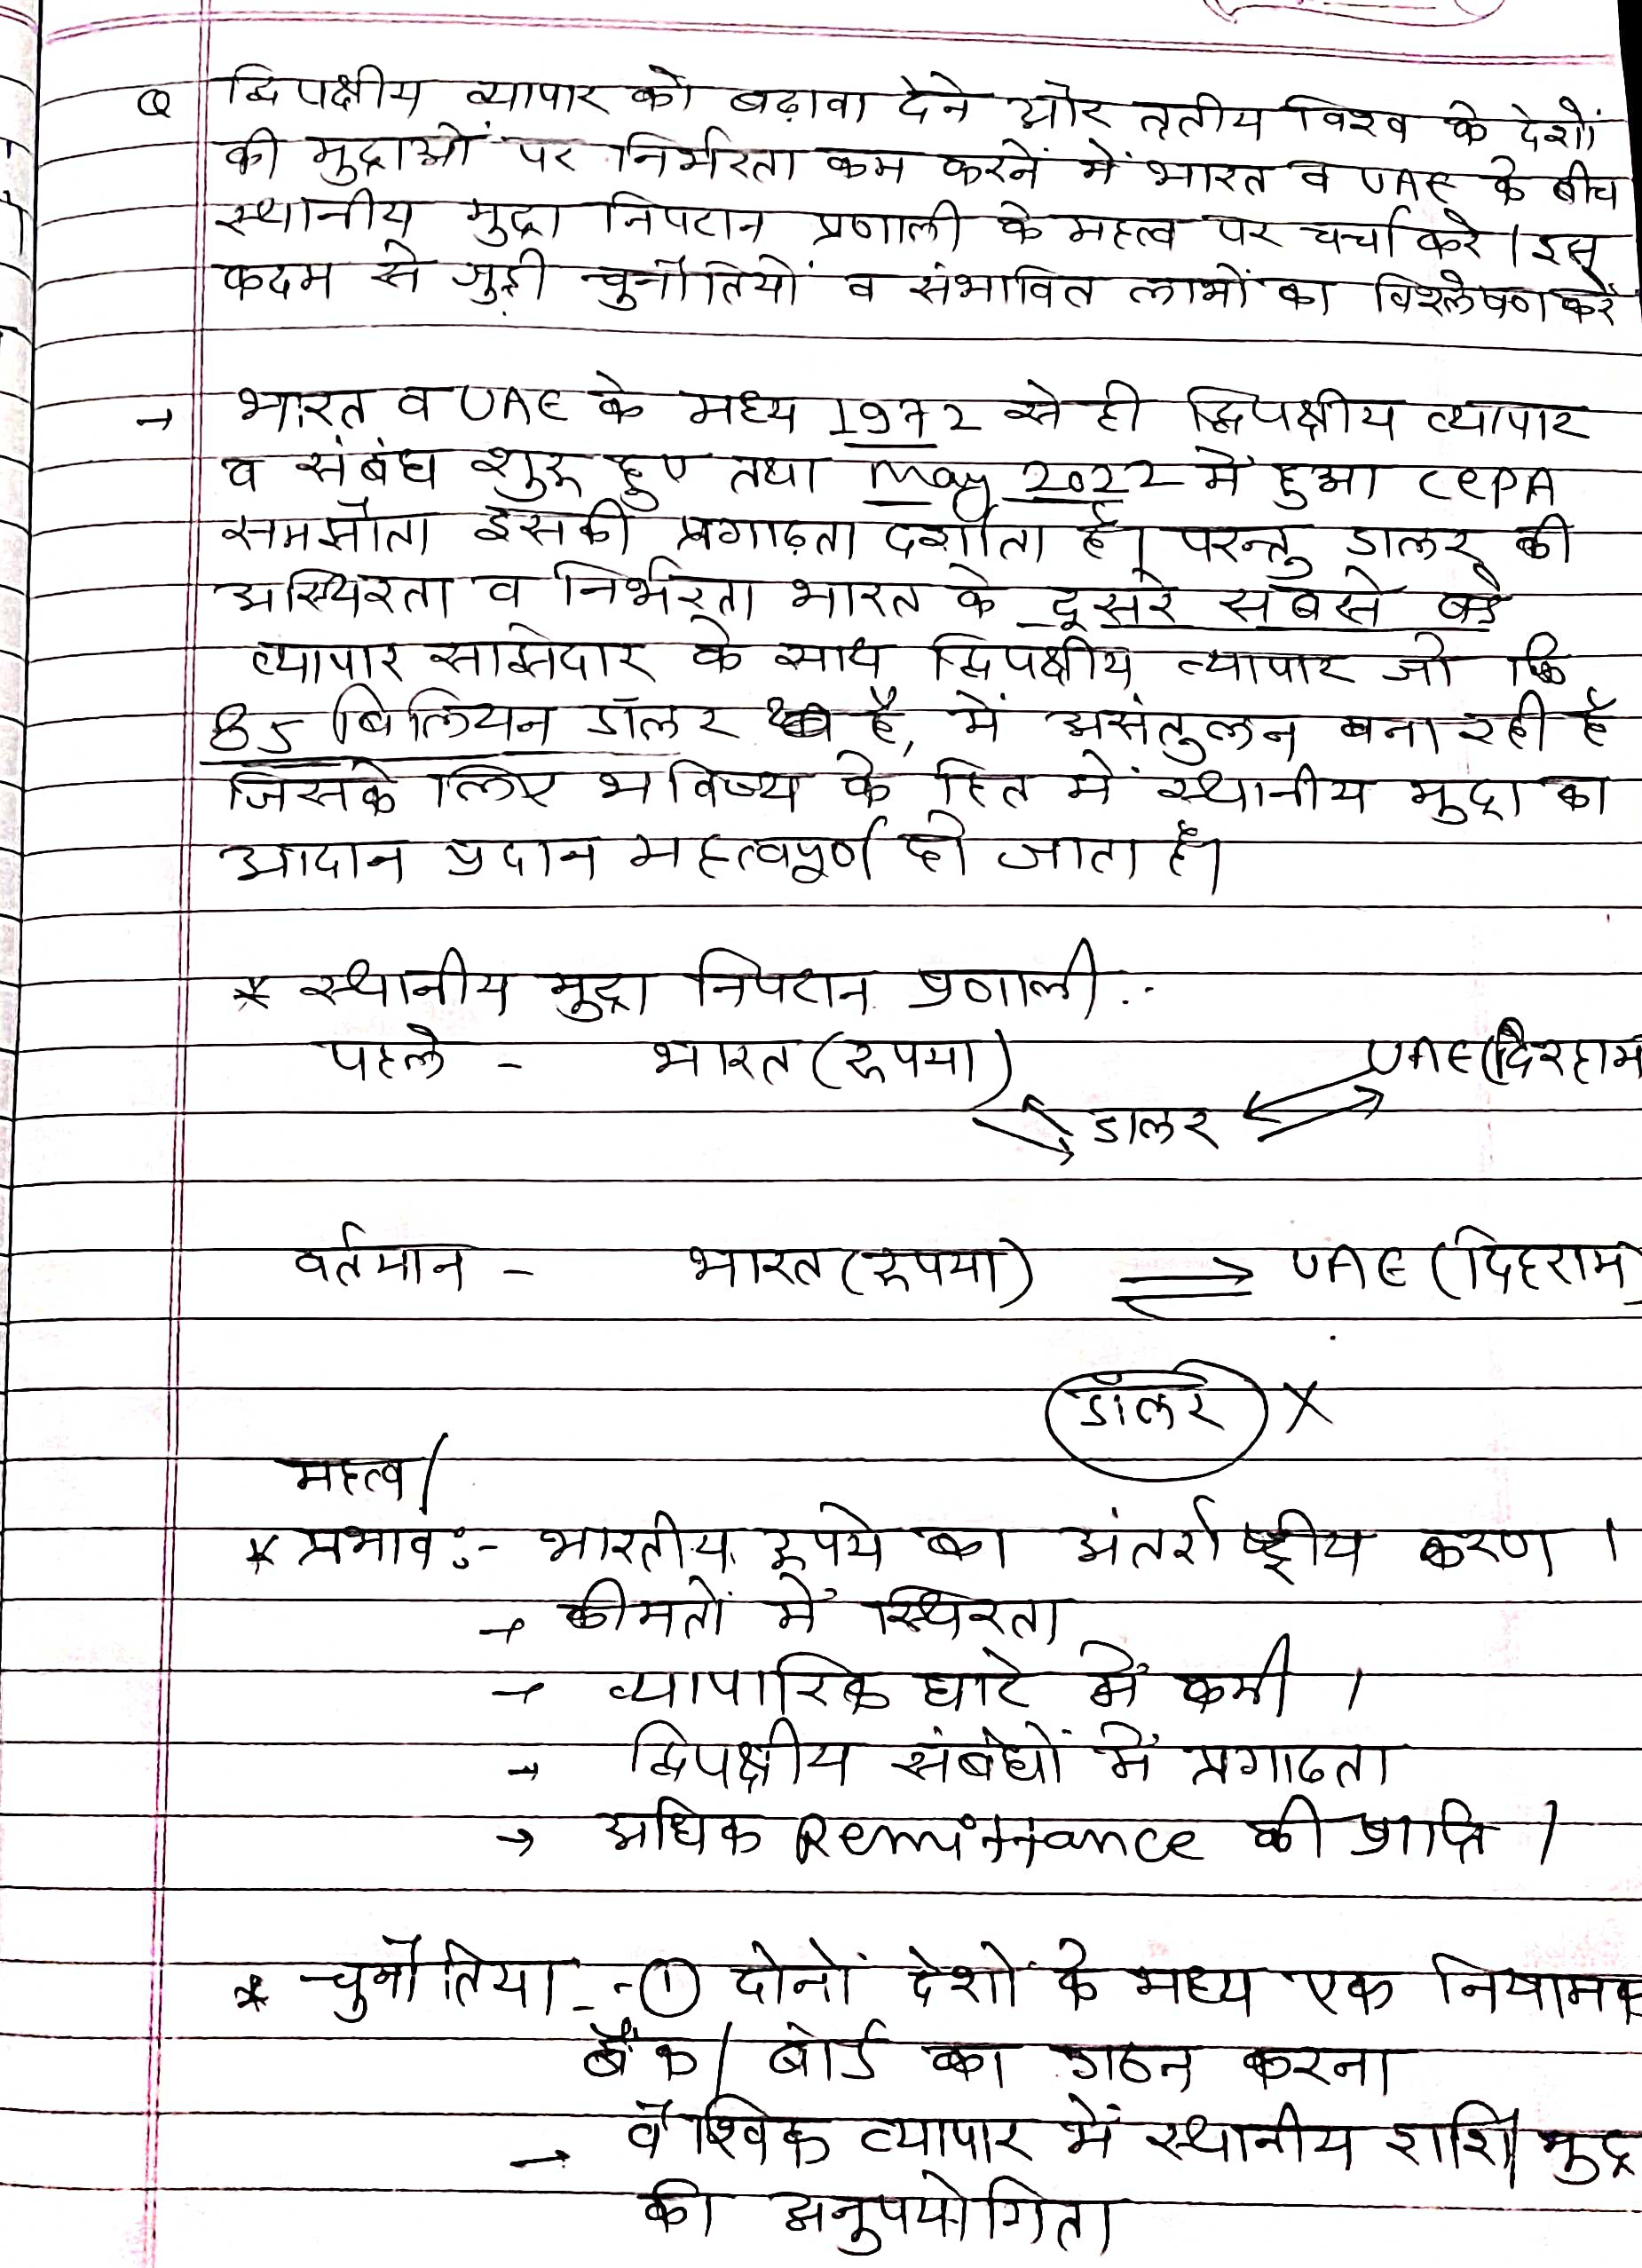 Q द्विपक्षीय व्यापार को बढ़ावा देने और तृतीय विश्व के देशों
की मुद्राओं पर निर्भरता कम करनें में भारत व UAE के बीच
स्थानीय मुद्रा निपटान प्रणाली के महत्व पर चर्चा करे। इस
कदम से जुड़ी चुनौतियों व संभावित लाभों का विश्लेषण करें
→ भारत व UAE के मध्य 1972 से ही द्विपक्षीय व्यापार
व संबंध शुरू हुए तथा May 2022 में हुआ CEPA
समझौता इसकी प्रगाढ़ता दर्शाता है। परन्तु डालर की
अस्थिरता व निर्भरता भारत के दूसरे सबसे बड़े
व्यापार साझेदार के साथ द्विपक्षीय व्यापार जो कि
85 बिलियन डॉलर है, में असंतुलन बना रही है
जिसके लिए भविष्य के हित में स्थानीय मुद्रा का
आदान प्रदान महत्वपूर्ण हो जाता है।
* स्थानीय मुद्रा निपटान प्रणाली :-
पहले - भारत (रूपया) डालर UAE (दिरहाम
वर्तमान - भारत (रूपया) ⇌ UAE (दिहराम)
डॉलर X
महत्व/
* प्रभाव :- भारतीय रूपये का अंतर्राष्ट्रीय करण ।
→ कीमतों में स्थिरता
→ व्यापारिक घाटे में कमी ।
→ द्विपक्षीय संबंधों में प्रगाढता
→ अधिक Remittance की प्राप्ति ।
* चुनौतिया :- ① दोनों देशों के मध्य एक नियामक
बैंक / बोर्ड का गठन करना
→ वैश्विक व्यापार में स्थानीय राशि/ मुद्र
की अनुपयोगिता